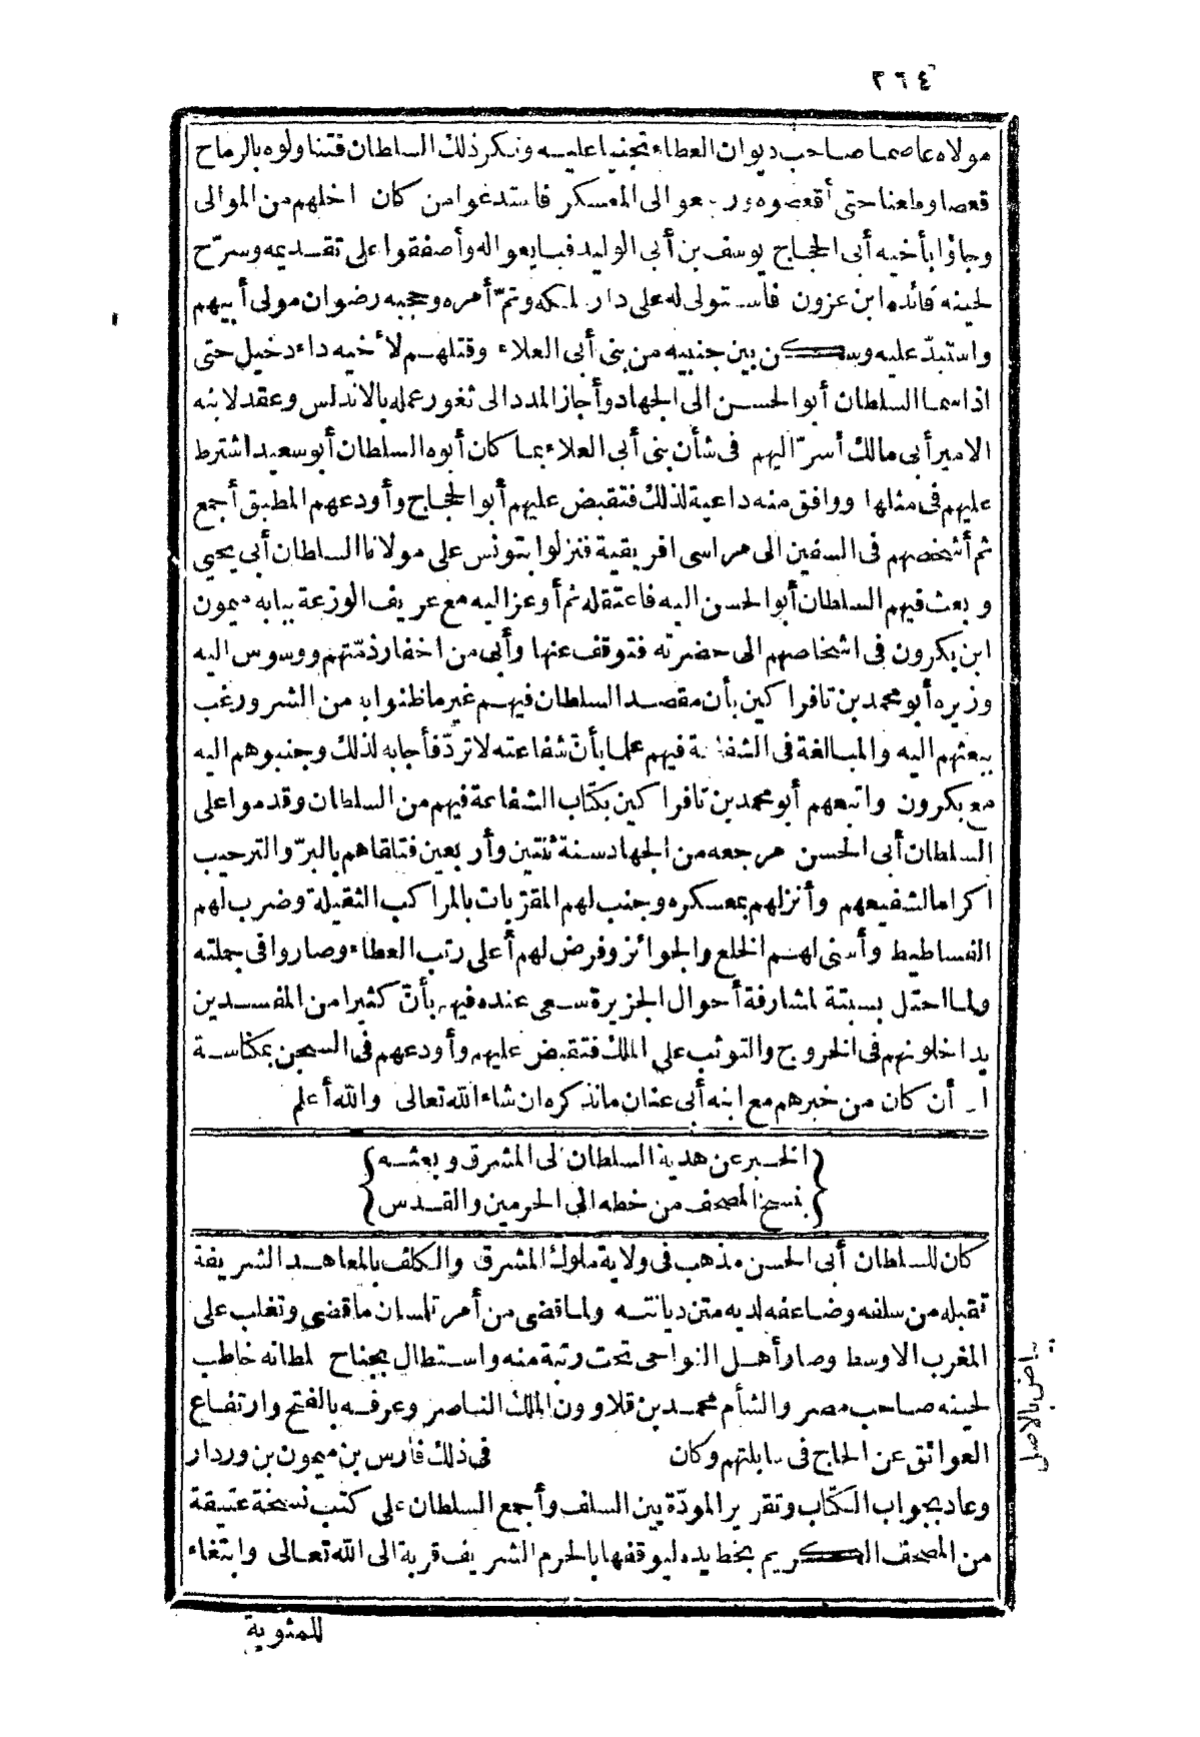 ٢٦٤
مولاه عاصما صاحب ديوان العطاء تجنيا عليه ونكر ذلك السلطان فتناولوه بالرماح
قعصا وطعنا حتى أقعصوه ورجعوا الى المعسكر فاستدعوا من كان اخلهم من الموالى
وجاؤا بأخيه أبى الحجاج يوسف بن أبى الوليد فبايعوا له وأصفقوا على تقديمه وسرّح
لحينه قائده ابن عزون فاستولى له على دار ملكه وتمّ أمره وحجبه رضوان مولى أبيهم
واستبدّ عليه وسكن بين جنبيه من بنى أبى العلاء وقتلهم لأخيه داء دخيل حتى
اذا سما السلطان أبو الحسن الى الجهاد وأجاز المدد الى ثغور عمله بالاندلس وعقد لابنه
الامير أبى مالك أسرّ اليهم فى شأن بنى أبى العلاء بما كان أبوه السلطان أبو سعيد اشترط
عليهم فى مثلها ووافق منه داعية لذلك فتقبض عليهم أبو الحجاج وأودعهم المطبق أجمع
ثم أشخصهم فى السفين الى مراسى افريقية فنزلوا بتونس على مولانا السلطان أبى يحيى
وبعث فيهم السلطان أبو الحسن اليه فاعتقلهم ثم أوعز اليه مع عريف الوزعة ببابه ميمون
ابن بكرون فى اشخاصهم الى حضرته فتوقف عنها وأبى من اخفار ذمّتهم ووسوس اليه
وزيره أبو محمد بن تافراكين بأن مقصد السلطان فيهم غير ما ظنوا به من الشر ورغب
ببعثهم اليه والمبالغة فى الشفاعة فيهم علما بأنّ شفاعته لا تردّ فأجابه لذلك وجنبوهم اليه
مع بكرون واتبعهم أبو محمد بن تافراكين بكتاب الشفاعة فيهم من السلطان وقدموا على
السلطان أبى الحسن مرجعه من الجهاد سنة ثنتين وأربعين فتلقاهم بالبرّ والترحيب
اكراما لشفيعهم وأنزلهم بمعسكره وجنب لهم المقرّبات بالمراكب الثقيلة وضرب لهم
الفساطيط وأسنى لهم الخلع والجوائز وفرض لهم أعلى رتب العطاء وصاروا فى جملته
ولما احتل بسبتة لمشارفة أحوال الجزيرة سعى عنده فيهم بأنّ كثيرا من المفسدين
يداخلونهم فى الخروج والتوثب على الملك فتقبض عليهم وأودعهم فى السجن بمكناسة
أن كان من خبرهم مع ابنه أبى عنان ما نذكره ان شاء الله تعالى والله أعلم
{الخبر عن هدية السلطان الى المشرق وبعثه}
{بنسخ المصحف من خطه الى الحرمين والقدس}
كان للسلطان أبى الحسن مذهب فى ولاية ملوك المشرق والكلف بالمعاهد الشريفة
تقبله من سلفه وضاعفه لديه متن ديانته ولما قضى من أمر تلمسان ما قضى وتغلب على
المغرب الاوسط وصار أهل النواحى تحت ربقة منه واستطال بجناح سلطانه خاطب
لحينه صاحب مصر والشأم محمد بن قلاوون الملك الناصر وعرفه بالفتح وارتفاع
العوائق عن الحاج فى سابلتهم وكان فى ذلك فارس بن ميمون بن وردار
وعاد بجواب الكتاب وتقرير المودّة بين السلف وأجمع السلطان على كتب نسخة عتيقة
من المصحف الكريم بخط يده ليوقفها بالحرم الشريف قربة الى الله تعالى وابتغاء
للمثوبة
بياض بالاصل